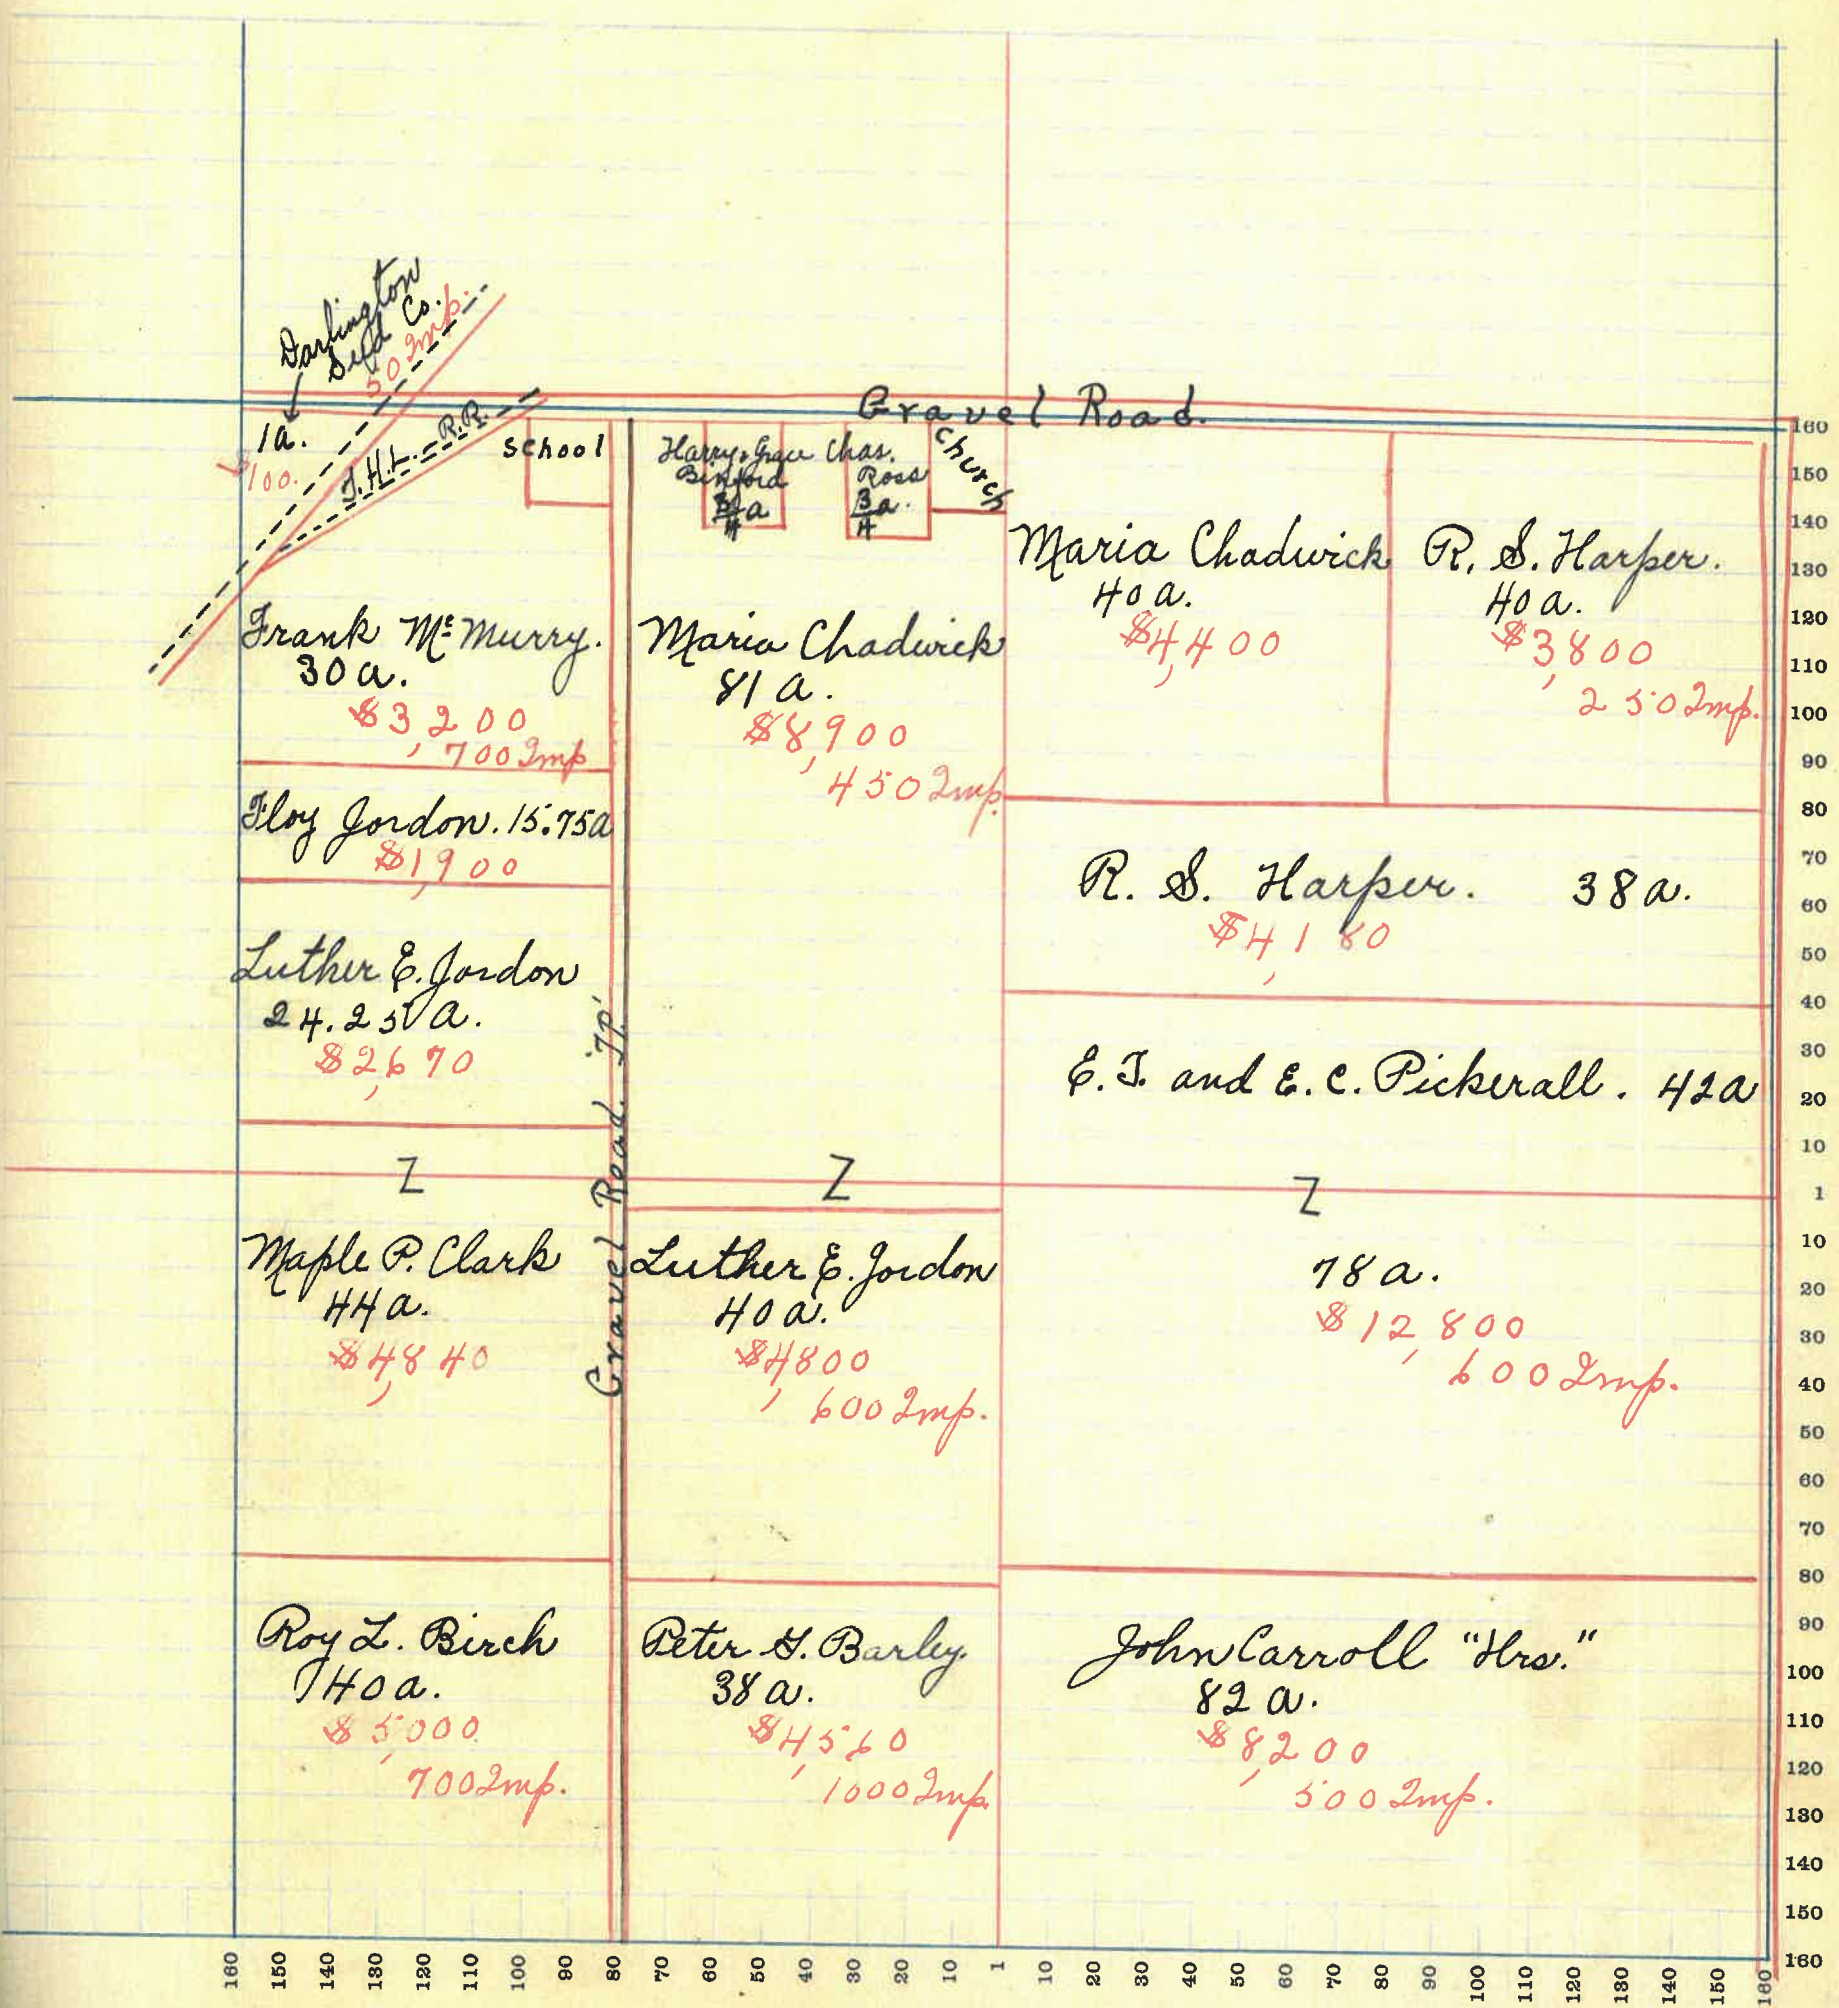 Darlington
Seed Co.
50 Imp.
1a.
100.
T.H.I. R.R.
School
Gravel Road.
Harry & Grace
Binford
3/4 a
Chas.
Ross
3/4 a.
Church
Maria Chadwick
40 a.
$4,400
R. S. Harper.
40 a.
$3,800
250 Imp.
Frank Mc Murry.
30 a.
$3,200
700 Imp
Maria Chadwick
81 a.
$8,900
450 Imp.
Floy Jordon. 15.75a
$1,900
R. S. Harper. 38 a.
$4,180
Luther E. Jordon
24.25 a.
$2,670
E. T. and E. C. Pickerall. 42a
Gravel Road. Tp.
Z
Z
Z
Maple P. Clark
44 a.
$4,840
Luther E. Jordon
40 a.
$4,800
600 Imp.
78 a.
$12,800
600 Imp.
Roy L. Birch
40 a.
$5,000
700 Imp.
Peter G. Barley.
38 a.
$4,560
1000 Imp.
John Carroll "Hrs."
82 a.
$8,200
500 Imp.
160
150
140
130
120
110
100
90
80
70
60
50
40
30
20
10
1
10
20
30
40
50
60
70
80
90
100
110
120
130
140
150
160
160 150 140 130 120 100 90 80 70 60 50 40 30 20 10 1 10 20 30 40 50 60 70 80 90 100 110 120 130 140 150 160